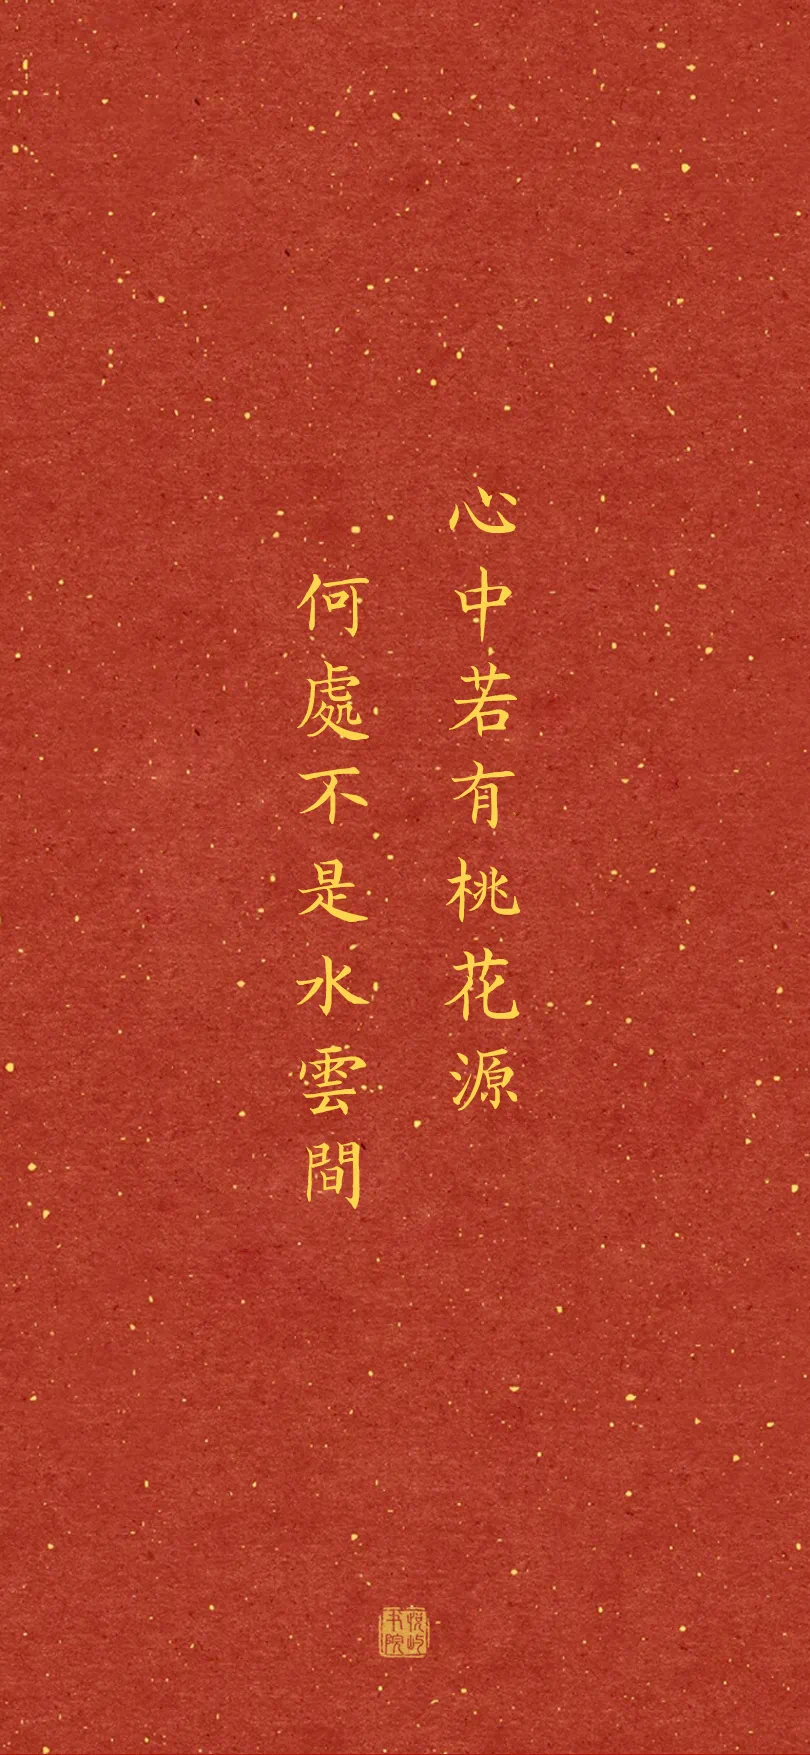 心中若有桃花源
何處不是水雲間
悦屿
书院